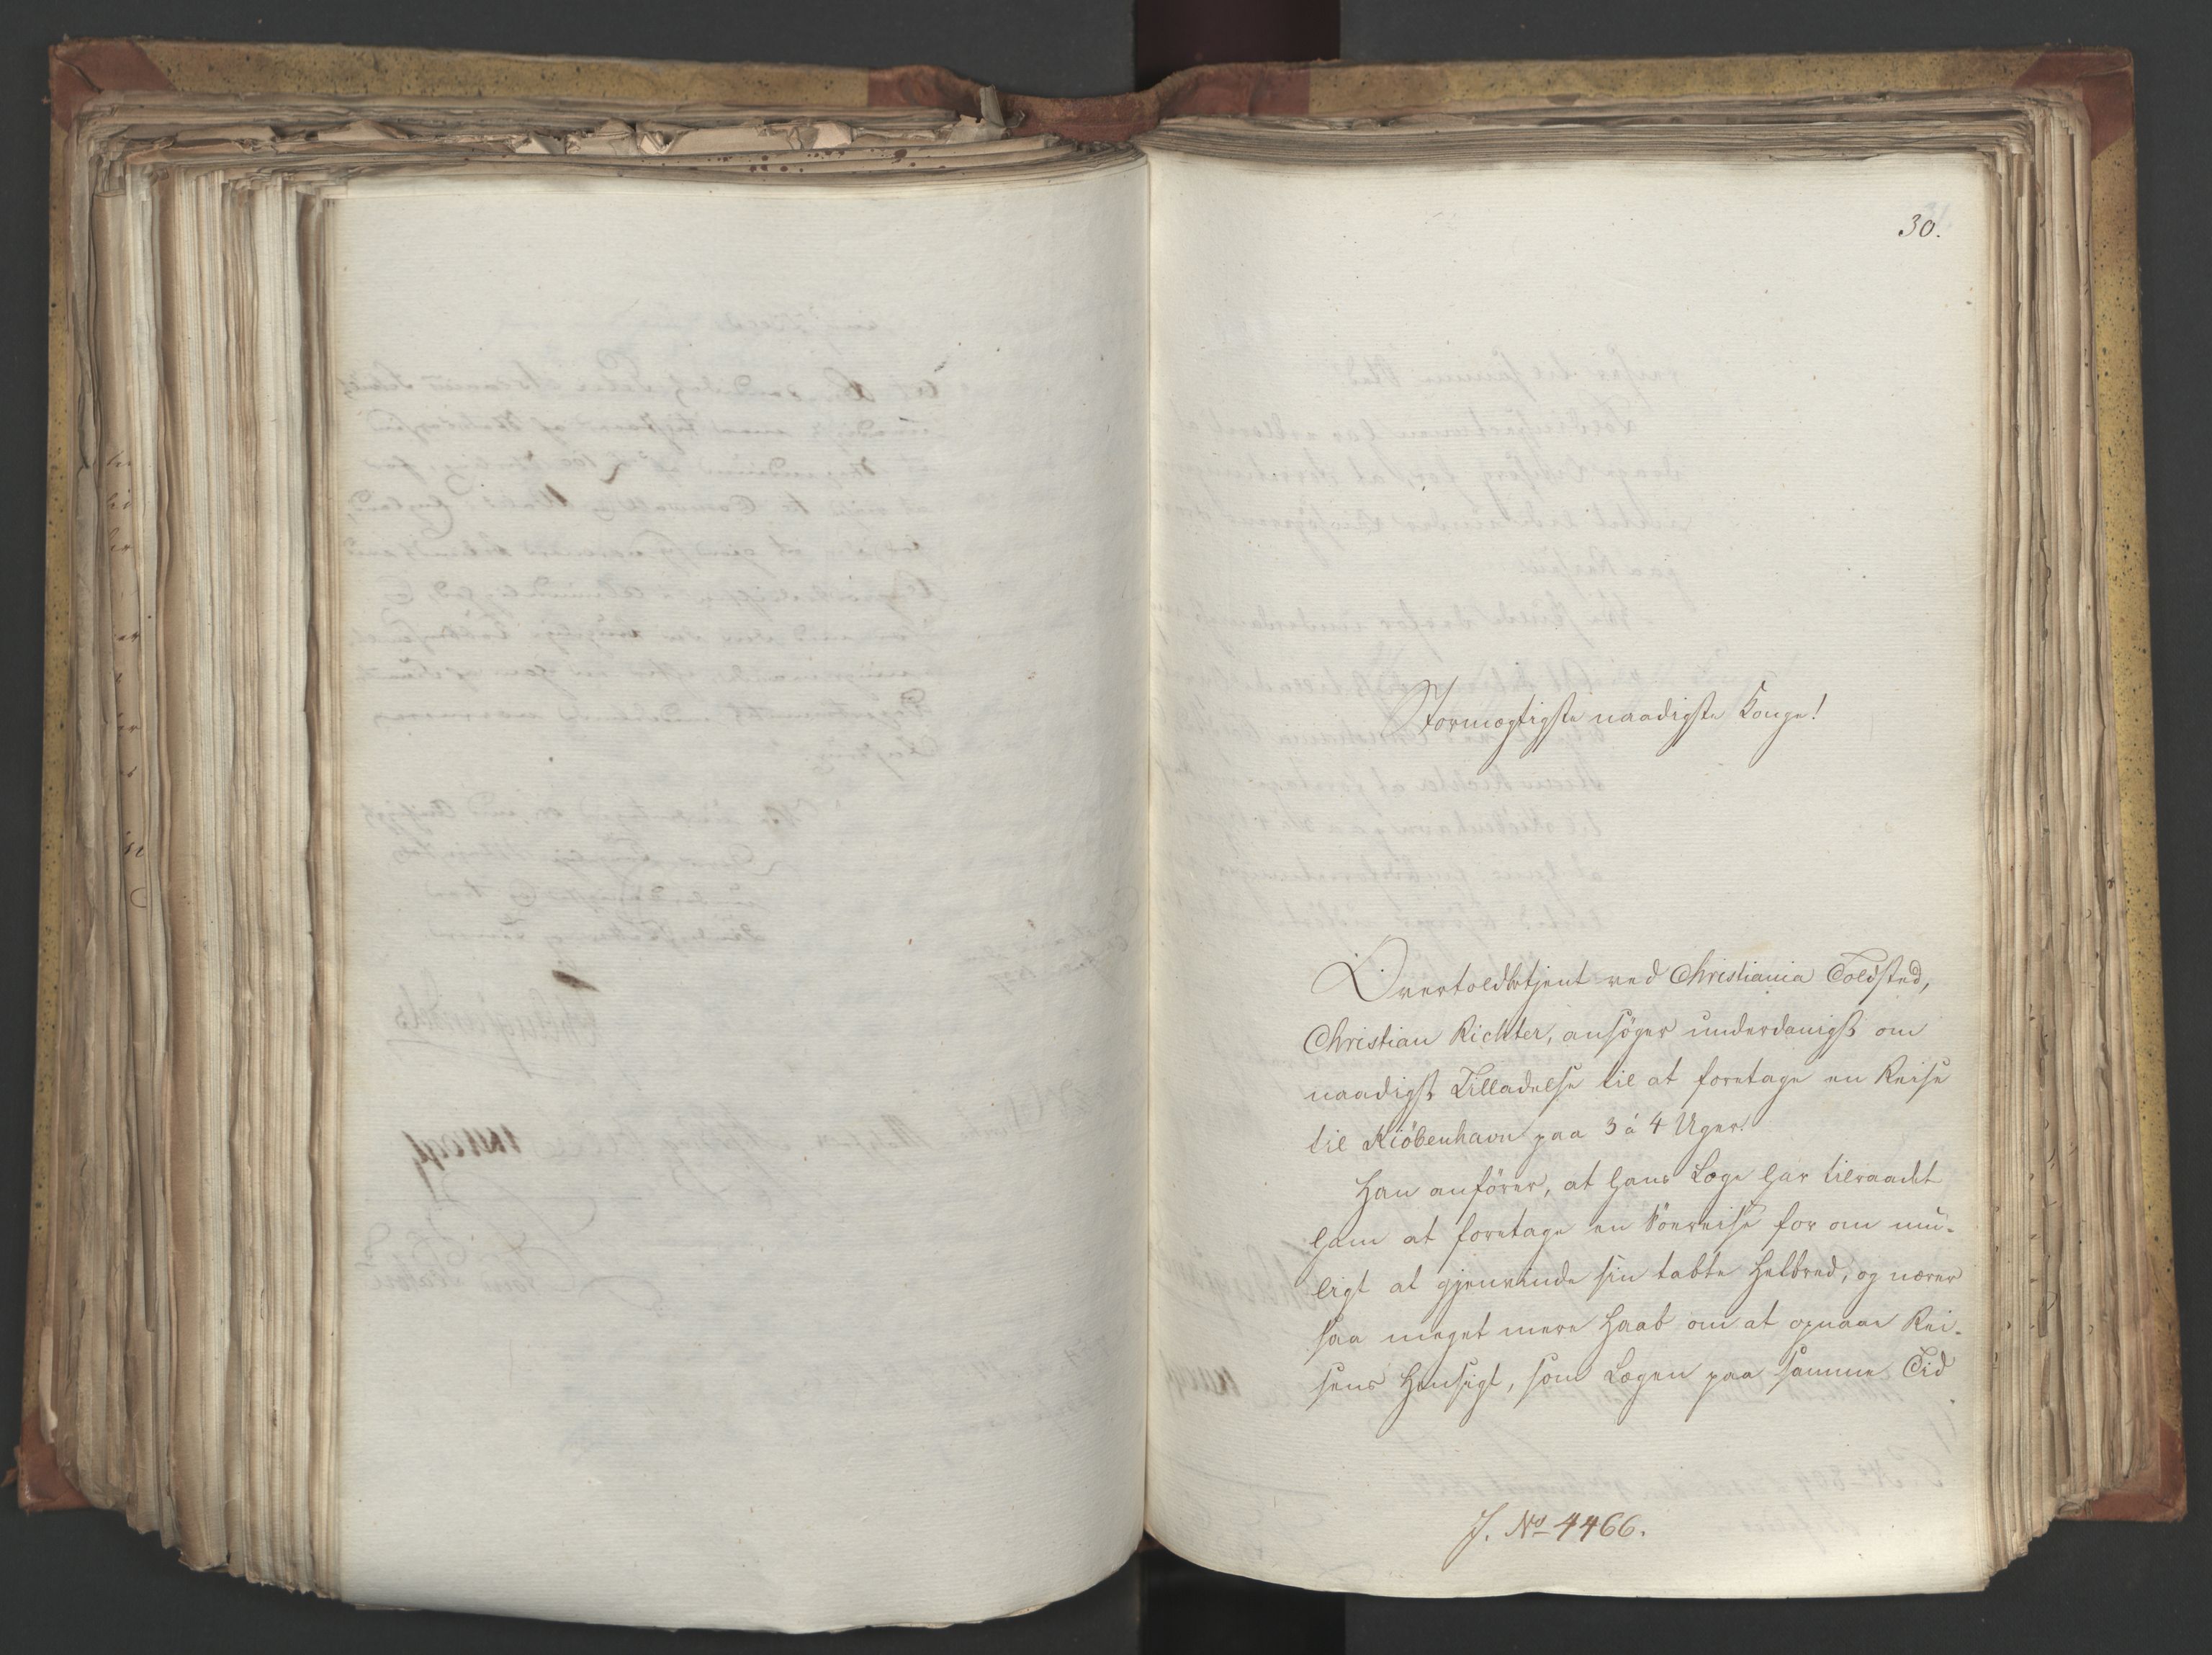 30.
Stormægtigste naadigste Konge!
Overtoldbetjent ved Christiania Toldsted,
Christian Richter, ansøger underdanigst om
naadigst Tilladelse til at foretage en Reise
til Kiöbenhavn paa 3 á 4 Uger.
Han anförer, at hans Læge har tilraadet
ham at foretage en Söereise for om mu-
ligt at gjenvinde sin tabte Helbred, og nærer
saa meget mere Haab om at opnaae Rei-
sens Hensigt, som Lægen paa samme Tid
J. No 4466.